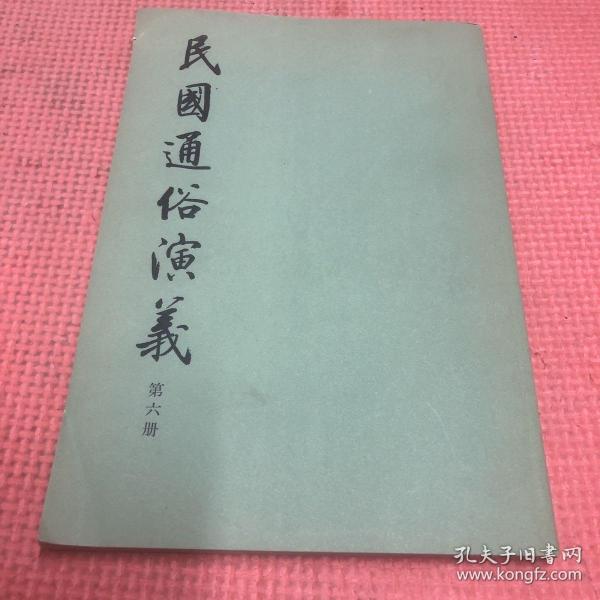 民國通俗演義
第六册
孔夫子旧书网
www.kongfz.com